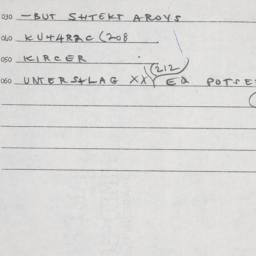 030 -BUT SHTEKT AROYS
040 KUTARZC (208
050 KIRCER
(212)
060 UNTERSHLAG XXY EQ POTSE